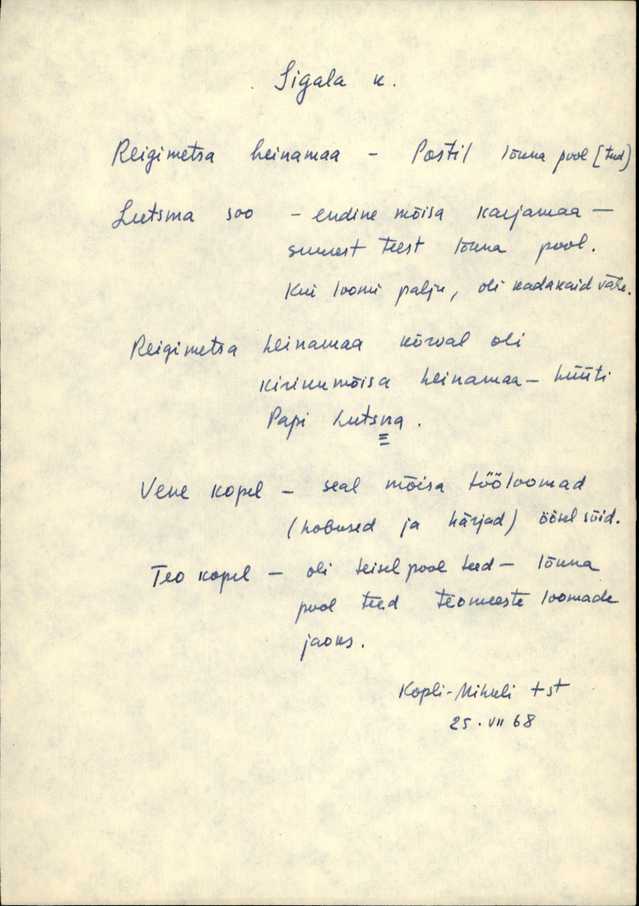 Sigala k.
Reigimetsa heinamaa - Postil lõuna pool [teed]
Lutsma soo - endine mõisa karjamaa -
suurest teest lõuna pool.
Kui loomi palju, oli kadakaid vähe.
Reigimetsa heinamaa kõrval oli
kirikumõisa heinamaa - hüüti
Papi Lutsna.
Vene kopel - seal mõisa tööloomad
(hobused ja härjad) öösel sõid.
Teo kopel - oli teisel pool teed - lõuna
pool teed teomeeste loomade
jaoks.
Kopli-Mihkli t st
25. VII 68